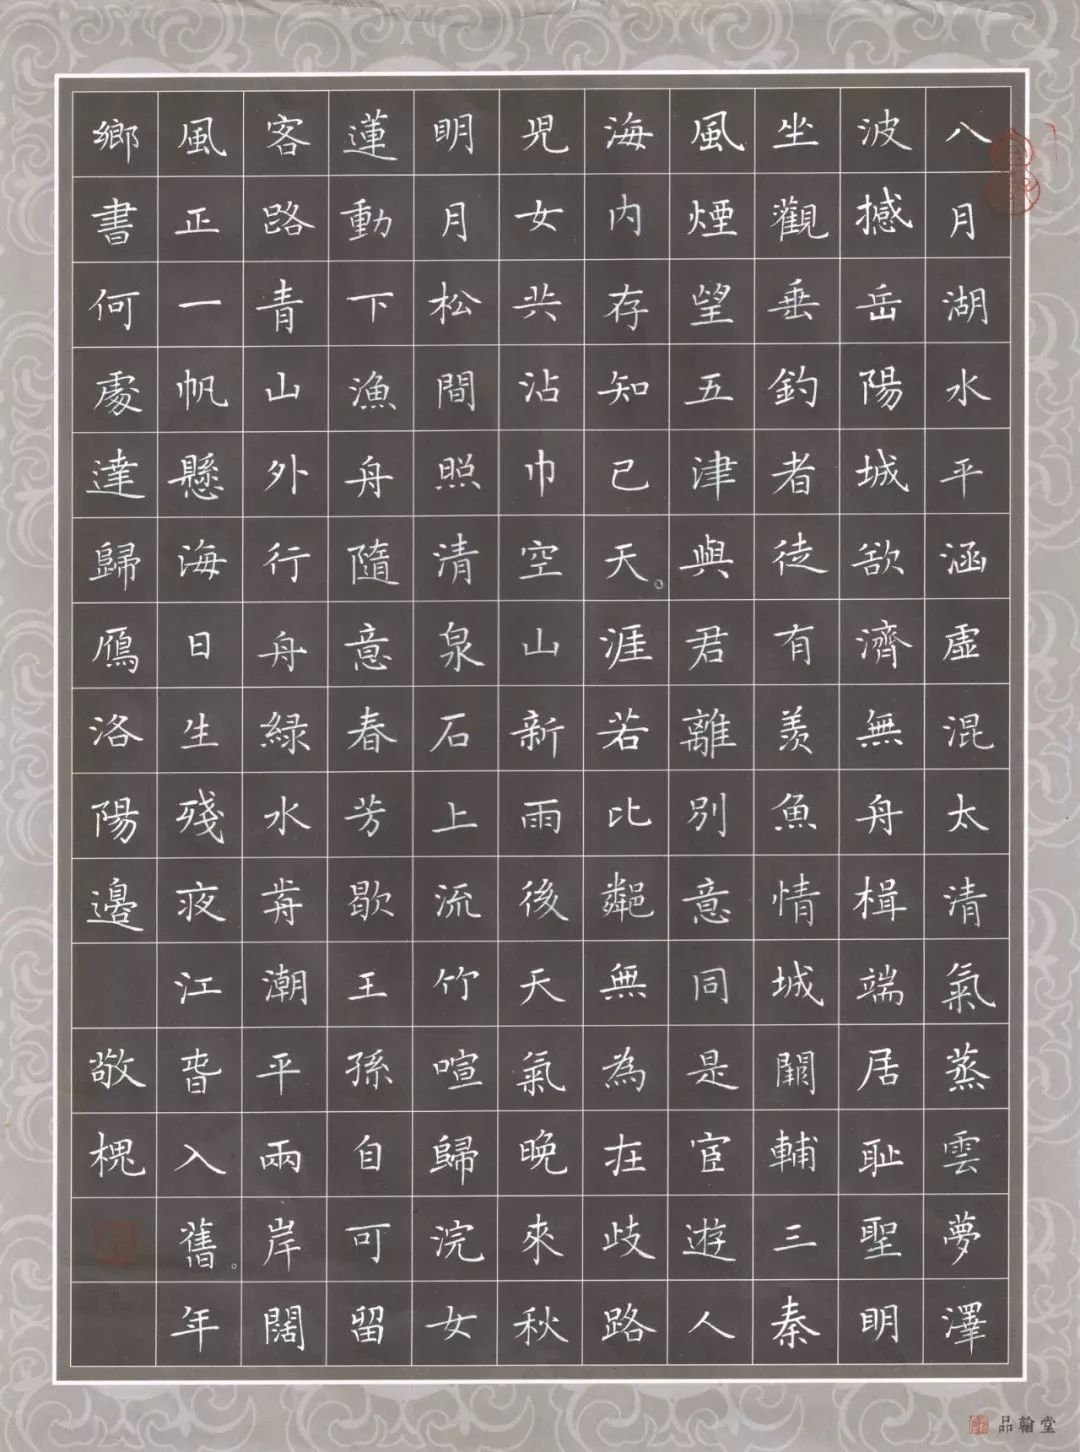 八月湖水平涵虛混太清氣蒸雲夢澤
波撼岳陽城欲濟無舟楫端居耻聖明
坐觀垂釣者徒有羨魚情城闕輔三秦
風煙望五津與君離別意同是宦遊人
海内存知已天。涯若比鄰無為在歧路
兒女共沾巾空山新雨後天氣晚來秋
明月松間照清泉石上流竹喧歸浣女
蓮動下漁舟隨意春芳歇王孫自可留
客路青山外行舟綠水前潮平兩岸闊
風正一帆懸海日生殘夜江春入舊。年
鄉書何處達歸鴈洛陽邊 敬槐
品翰堂